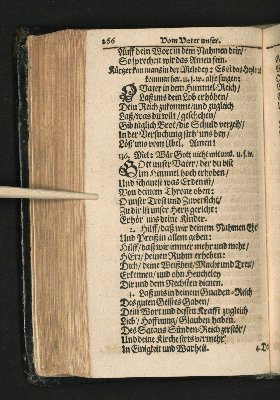 266 Vom Vater unser.
Auff dein Wort in dem Nahmen dein/
So sprechen wir das Amen fein.
Kürtzer kan mans in der Melodey: Es ist das Heyl uns
kommen her. u. s. w. also singen:
O Vater in dem Himmel-Reich/
Laß uns dein Lob erhöhen/
Dein Reich zukomme/und zugleich
Laß/was du wilt/geschehen/
Gib täglich Brot/die Schuld verzeih/
In der Versuchung steh' uns bey/
Löß' uns vom Übel. Amen!
136. Mel: Wär Gott nicht mit uns. u. s. w.
Gott unser Vater/ der du bist
Im Himmel hoch erhoben/
Und schauest was auf Erden ist/
Von deinem Throne oben:
O unser Trost und Zuversicht/
Zu dir ist unser Hertz gericht:
Erhör' uns deine Kinder.
2. Hilff/daß wir deinem Nahmen Ehr
Und Preiß in allem geben:
Hilff/daß wir immer mehr und mehr/
HErr/deinen Ruhm erheben:
Dich/deine Weißheit/Macht und Treu/
Erkennen/und ohn Heucheley
Dir und dem Nechsten dienen.
3. Laß uns in deinem Gnaden-Reich
Des guten Geistes Gaben/
Dein Wort und dessen Krafft zugleich
Lieb/Hoffnung/Glauben haben.
Des Satans Sünden-Reich zerstör/
Und deine Kirche stets vermehr/
In Einigkeit und Warheit.